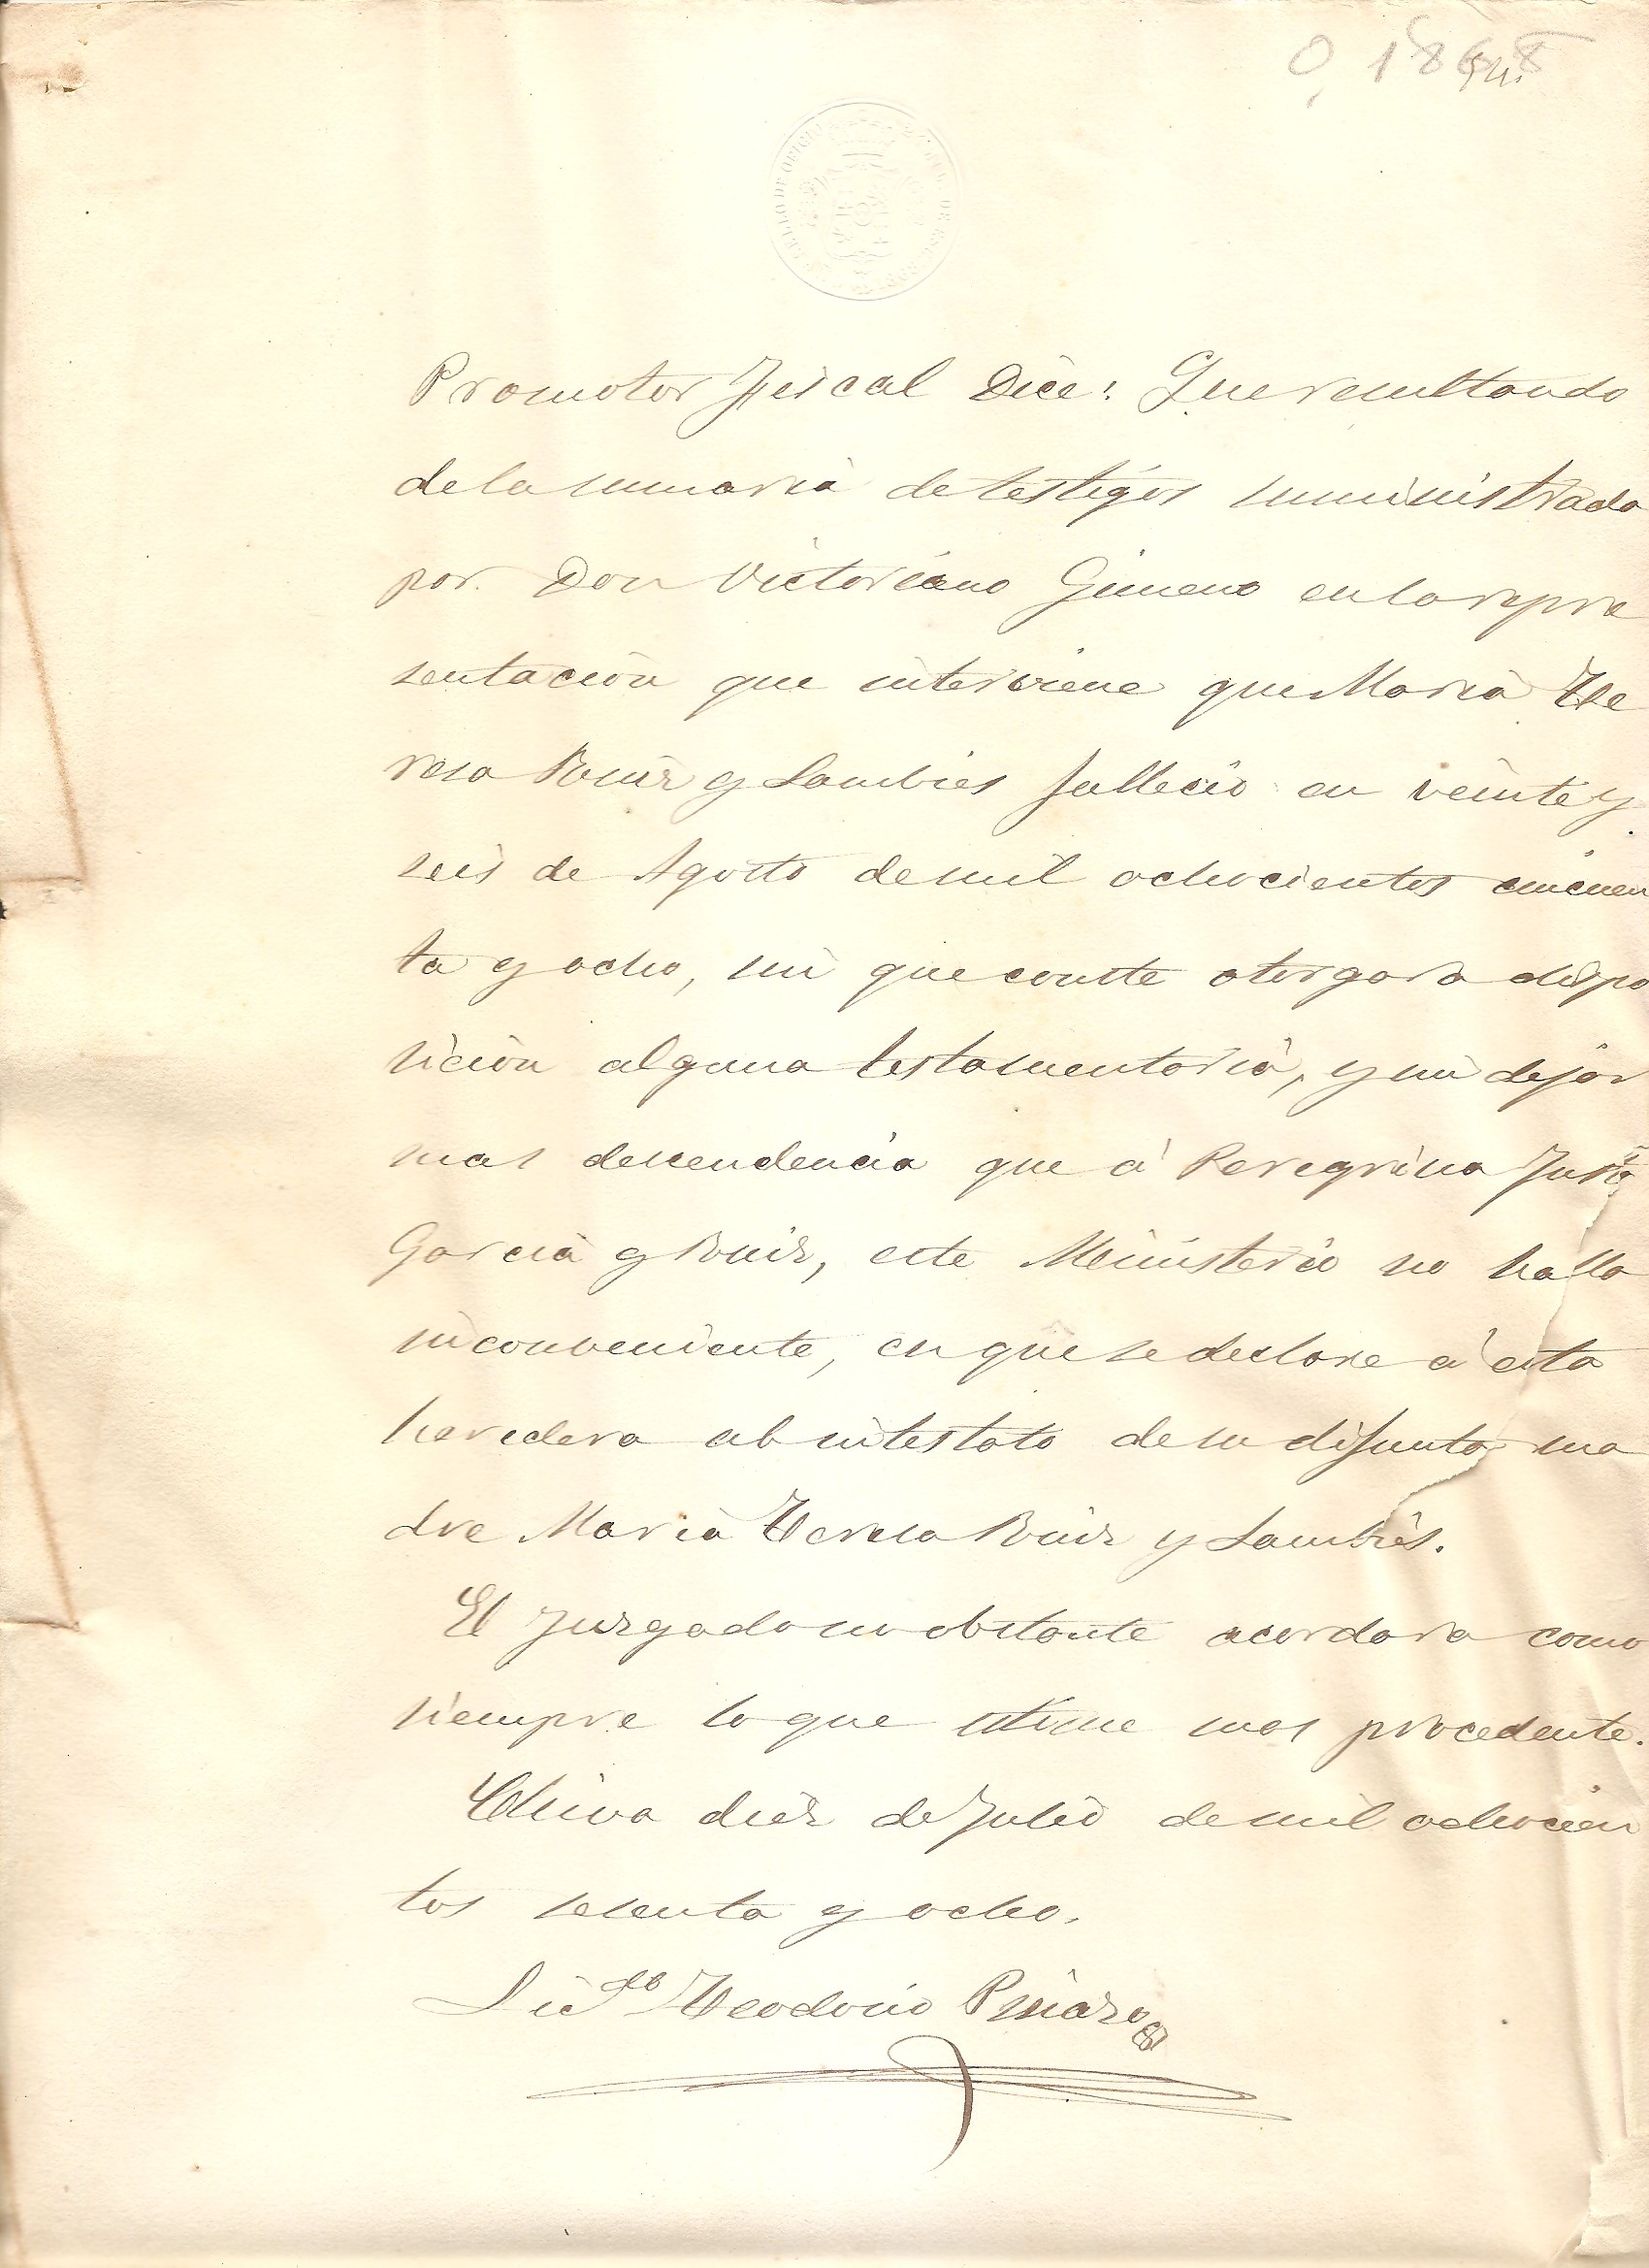 Promotor Fiscal Dice: Que resultando
de la sumaria de testigos suministrada
por Don Victoriano Gimeno en la repre
sentación que interviene que Maria Te
resa Ruiz y Lambies fallecio en veinte y
seis de Agosto de mil ochocientos cincuen
ta y ocho, sin que conste otorgara dispo
sicion alguna testamentaria, y sin dejar
mas descendencia que á Peregrina Justa
Garcia y Ruiz, este Ministerio no halla
inconveniente, en que se declare á esta
heredera abintestato de su difunta ma
dre Maria Teresa Ruiz y Lambies.
El Juzgado no obstante acordara como
siempre lo que estime mas procedente.
Chiva diez de Julio de mil ochocien
tos sesenta y ocho.
Licdo Teodosio Pinazo